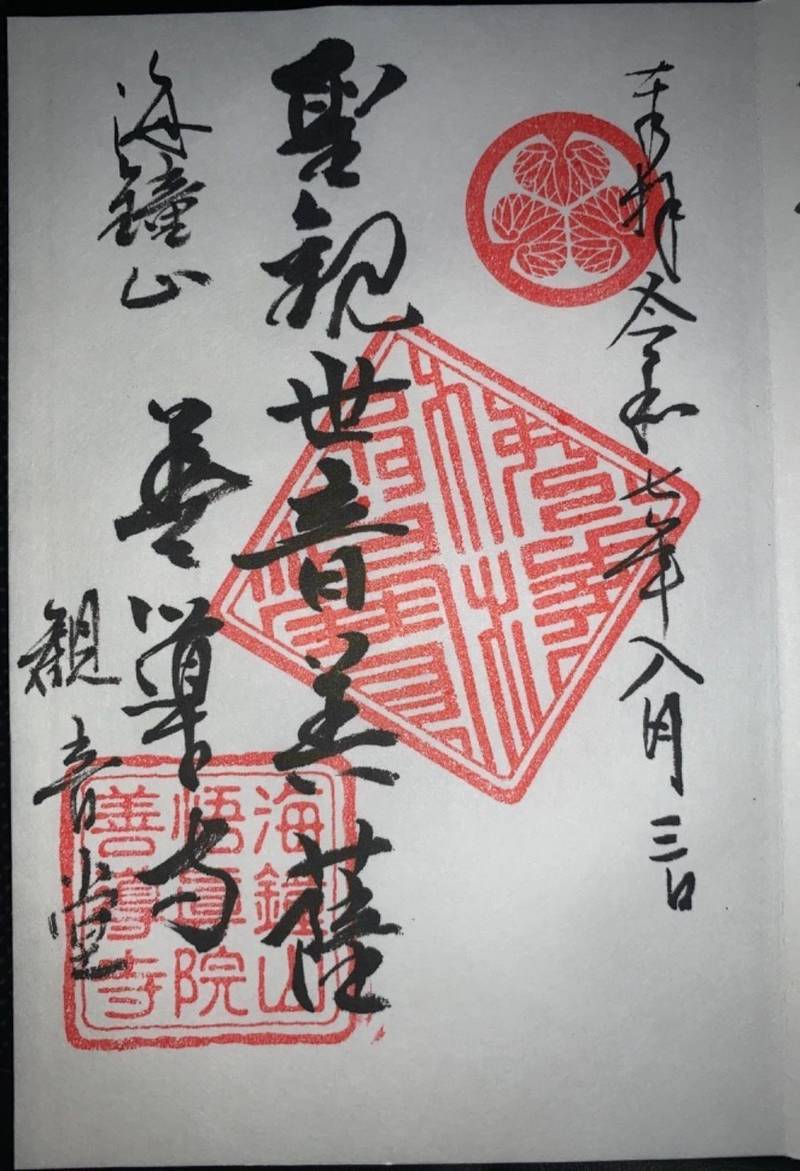 奉拝 令和七年八月三日
聖観世音菩薩
海鐘山 善導寺
観音堂
海鐘山
悟真院
善導寺